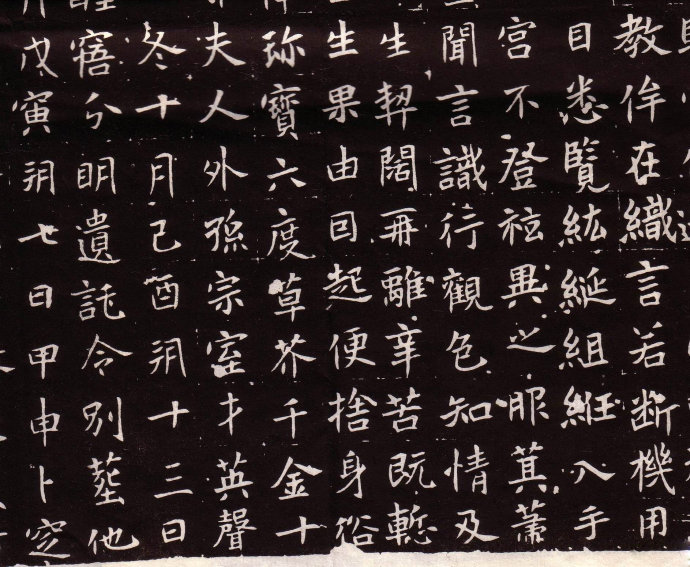 教侔在織言若断機用
目悉覽紘綖組絍入手
宮不登袨異之服箕箒
聞言識行觀色知情及
生契闊再離辛苦既慙
生果由因起便捨身俗
珎寶六度草芥千金十
夫人外孫宗室才英聲
冬十月己酉朔十三日
寤分明遺託令別葬他
戊寅朔七日甲申卜窆